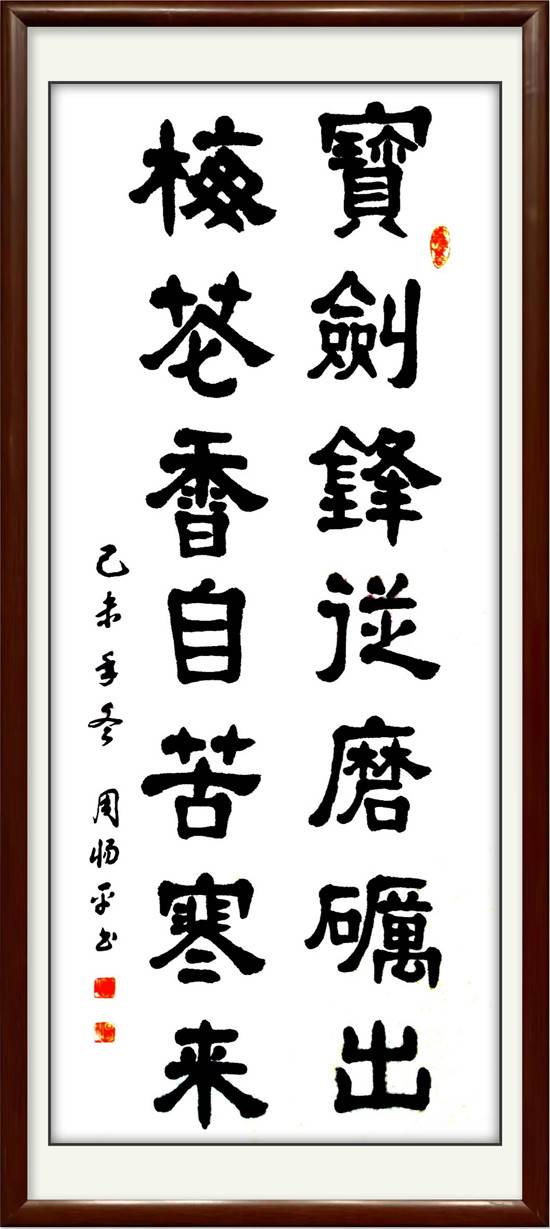 寶劍鋒從磨礪出
梅花香自苦寒来
己未年冬 周惕平书